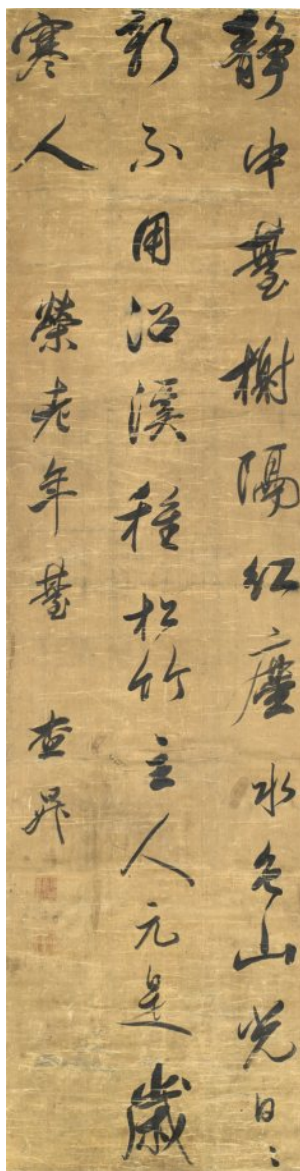 靜中臺榭隔紅塵水色山光日〻
新不用沿溪種松竹主人元是歲
寒人
榮老年臺 查昇